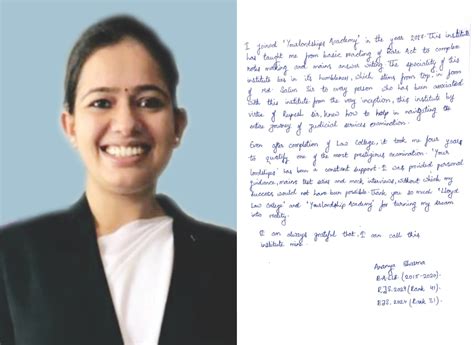 I joined "Yourlordships Academy" in the year 2020. This institute
has taught me from basic reading of Bare Act to complex
notes making and mains answer writing. The speciality of this
institute lies in its humbleness, which stems from top, in form
of Md. Salim Sir to every person who has been associated
with this institute from the very inception, this institute by
virtue of Rupesh Sir, know how to help in navigating the
entire journey of judicial services examination.
Even after completion of Law College, it took me four years
to qualify one of the most prestigious examination. "Your
lordships" has been a constant support. I was provided personal
guidance, mains test series and mock interviews, without which my
success would not have been possible. Thank you so much "Lloyd
Law College" and "Yourlordship Academy" for turning my dream
into reality.
I am always grateful that, I can call this
institute mine.
Ananya Sharma
B.A.LL.B. (2015-2020).
RJS. 2024 (Rank 41).
2024 (Rank 21).